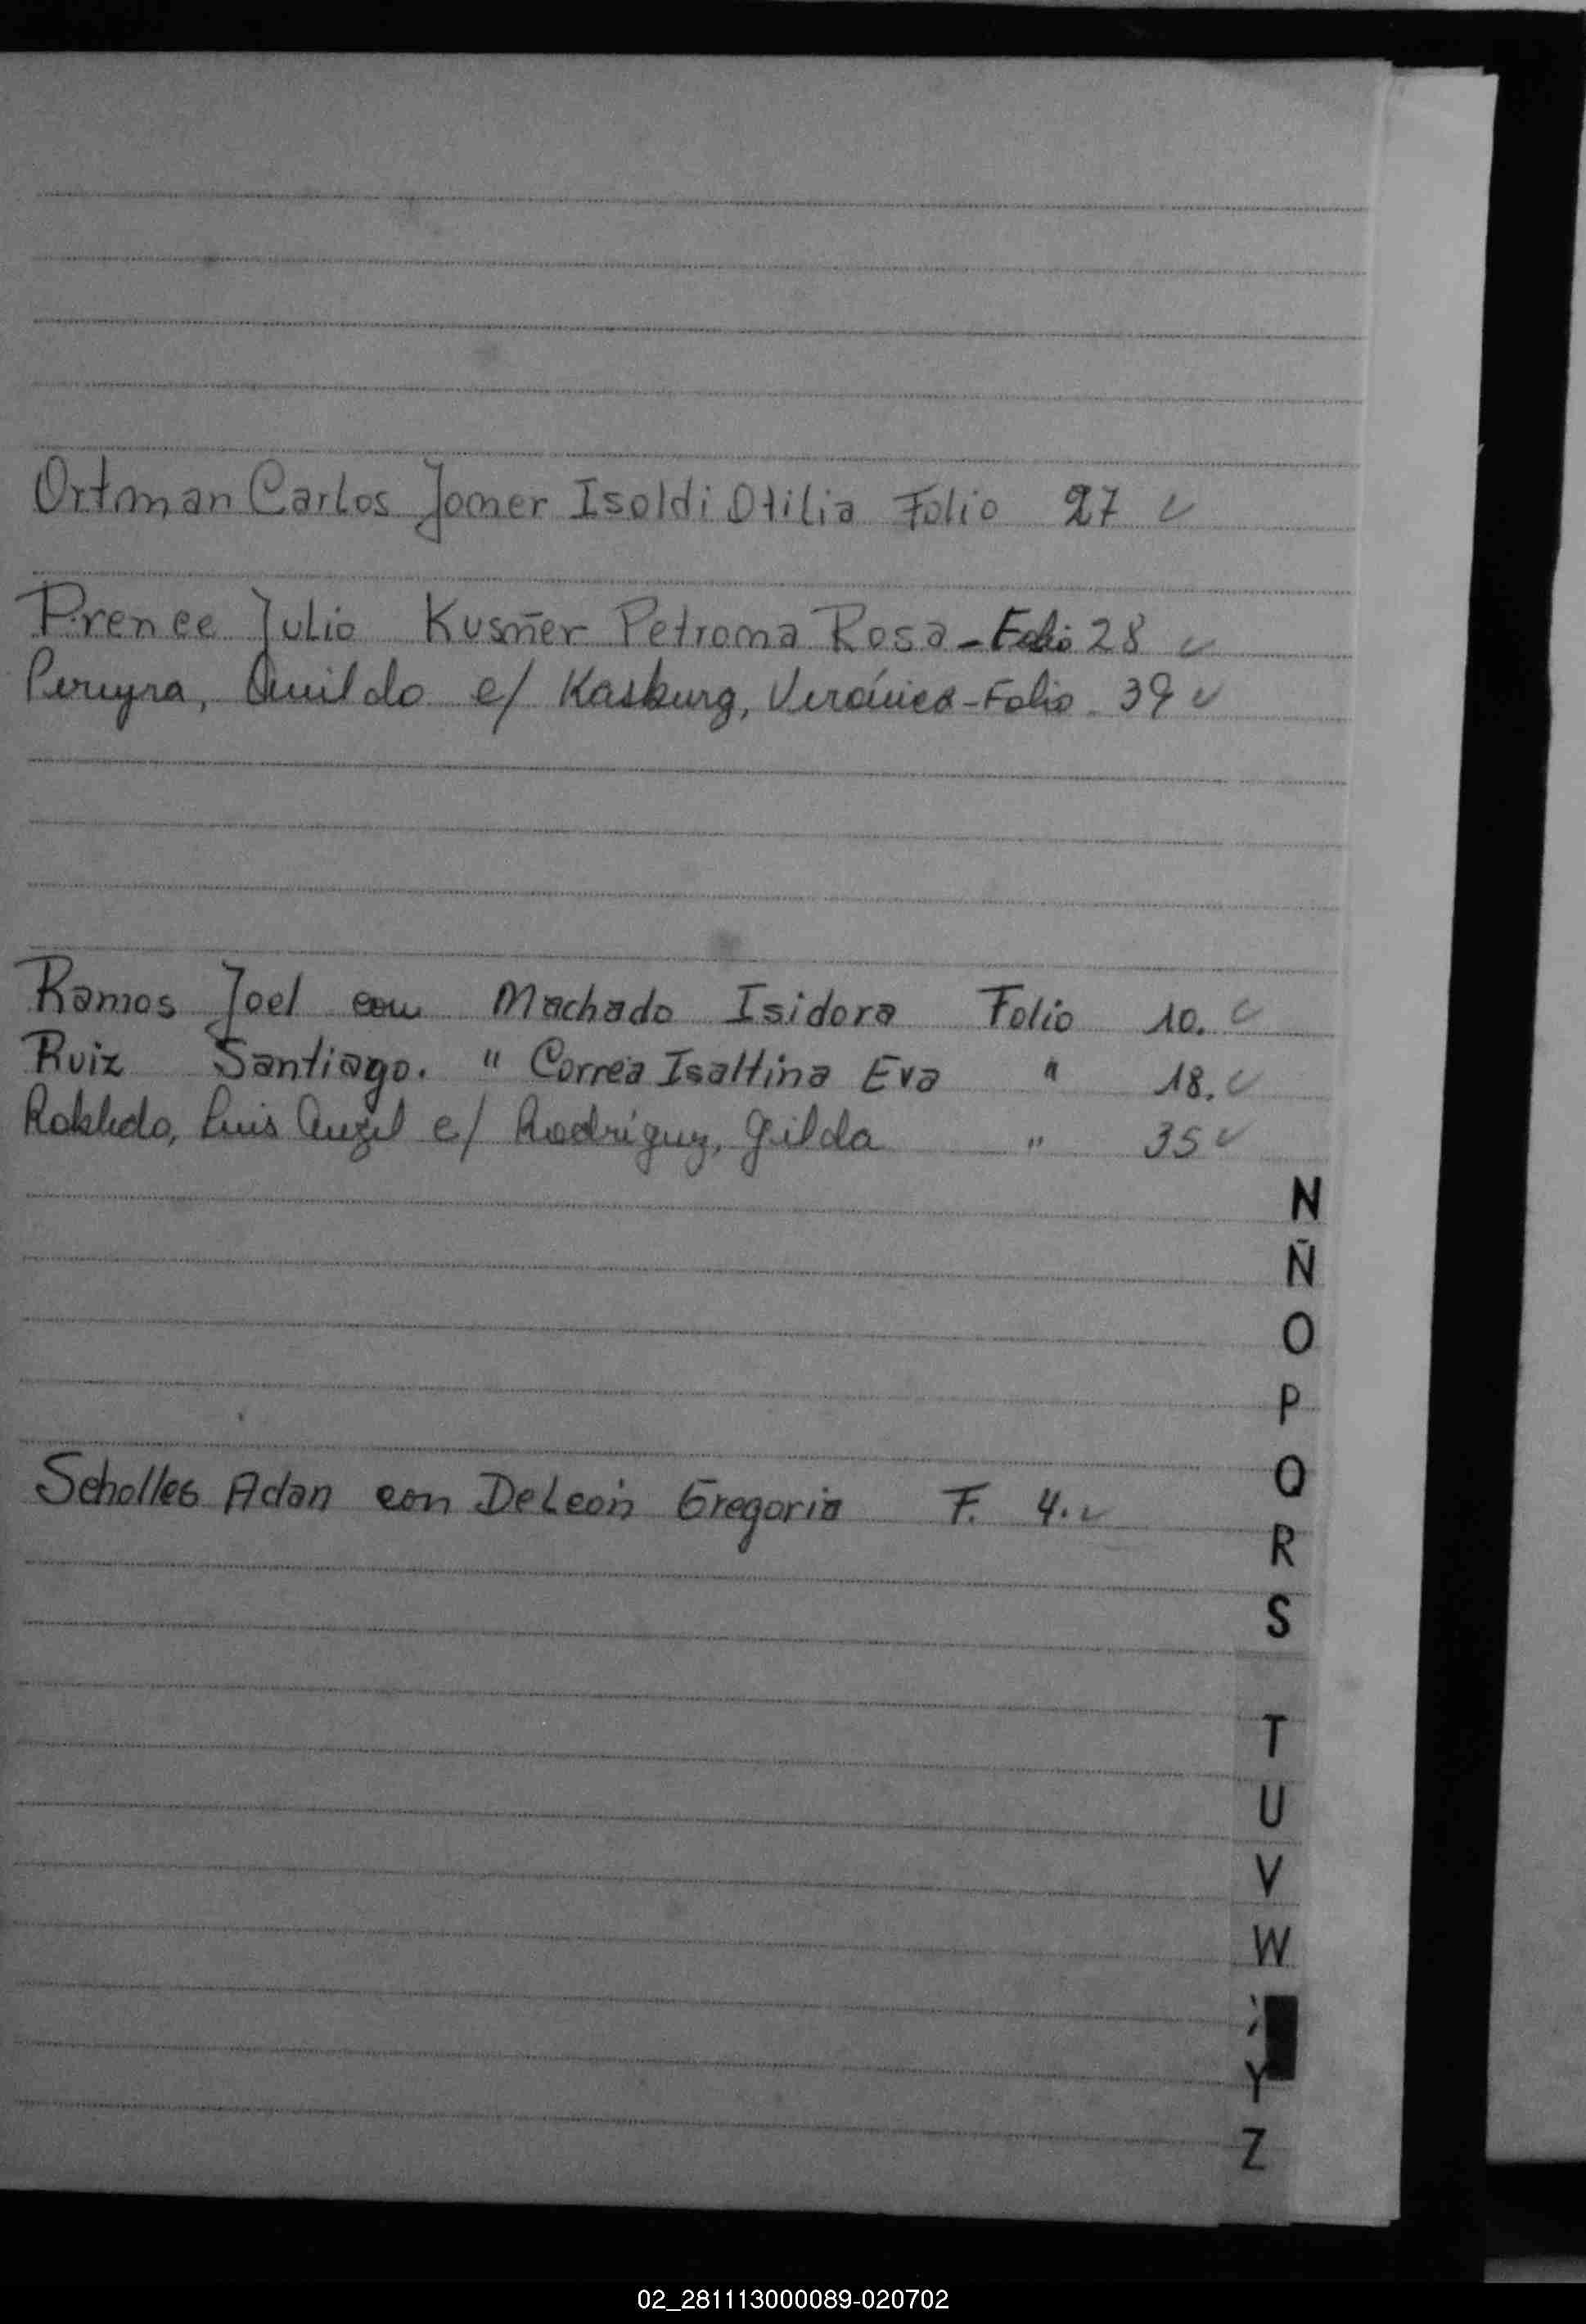 Ortman Carlos Jomer Isoldi Otilia Folio 27 ✓
Prence Julio Kusñer Petrona Rosa - Folio 28 ✓
Pereyra, Quildo c/ Kasburg, Verónica - Folio 39 ✓
Ramos Joel con Machado Isidora Folio 10. ✓
Ruiz Santiago. " Correa Isaltina Eva " 18. ✓
Robledo, Luis Angel c/ Rodríguez, Gilda " 35 ✓
N
Ñ
O
P
Scholles Adan con DeLeón Gregoria F. 4. ✓
Q
R
S
T
U
V
W
Y
Z
02_281113000089-020702